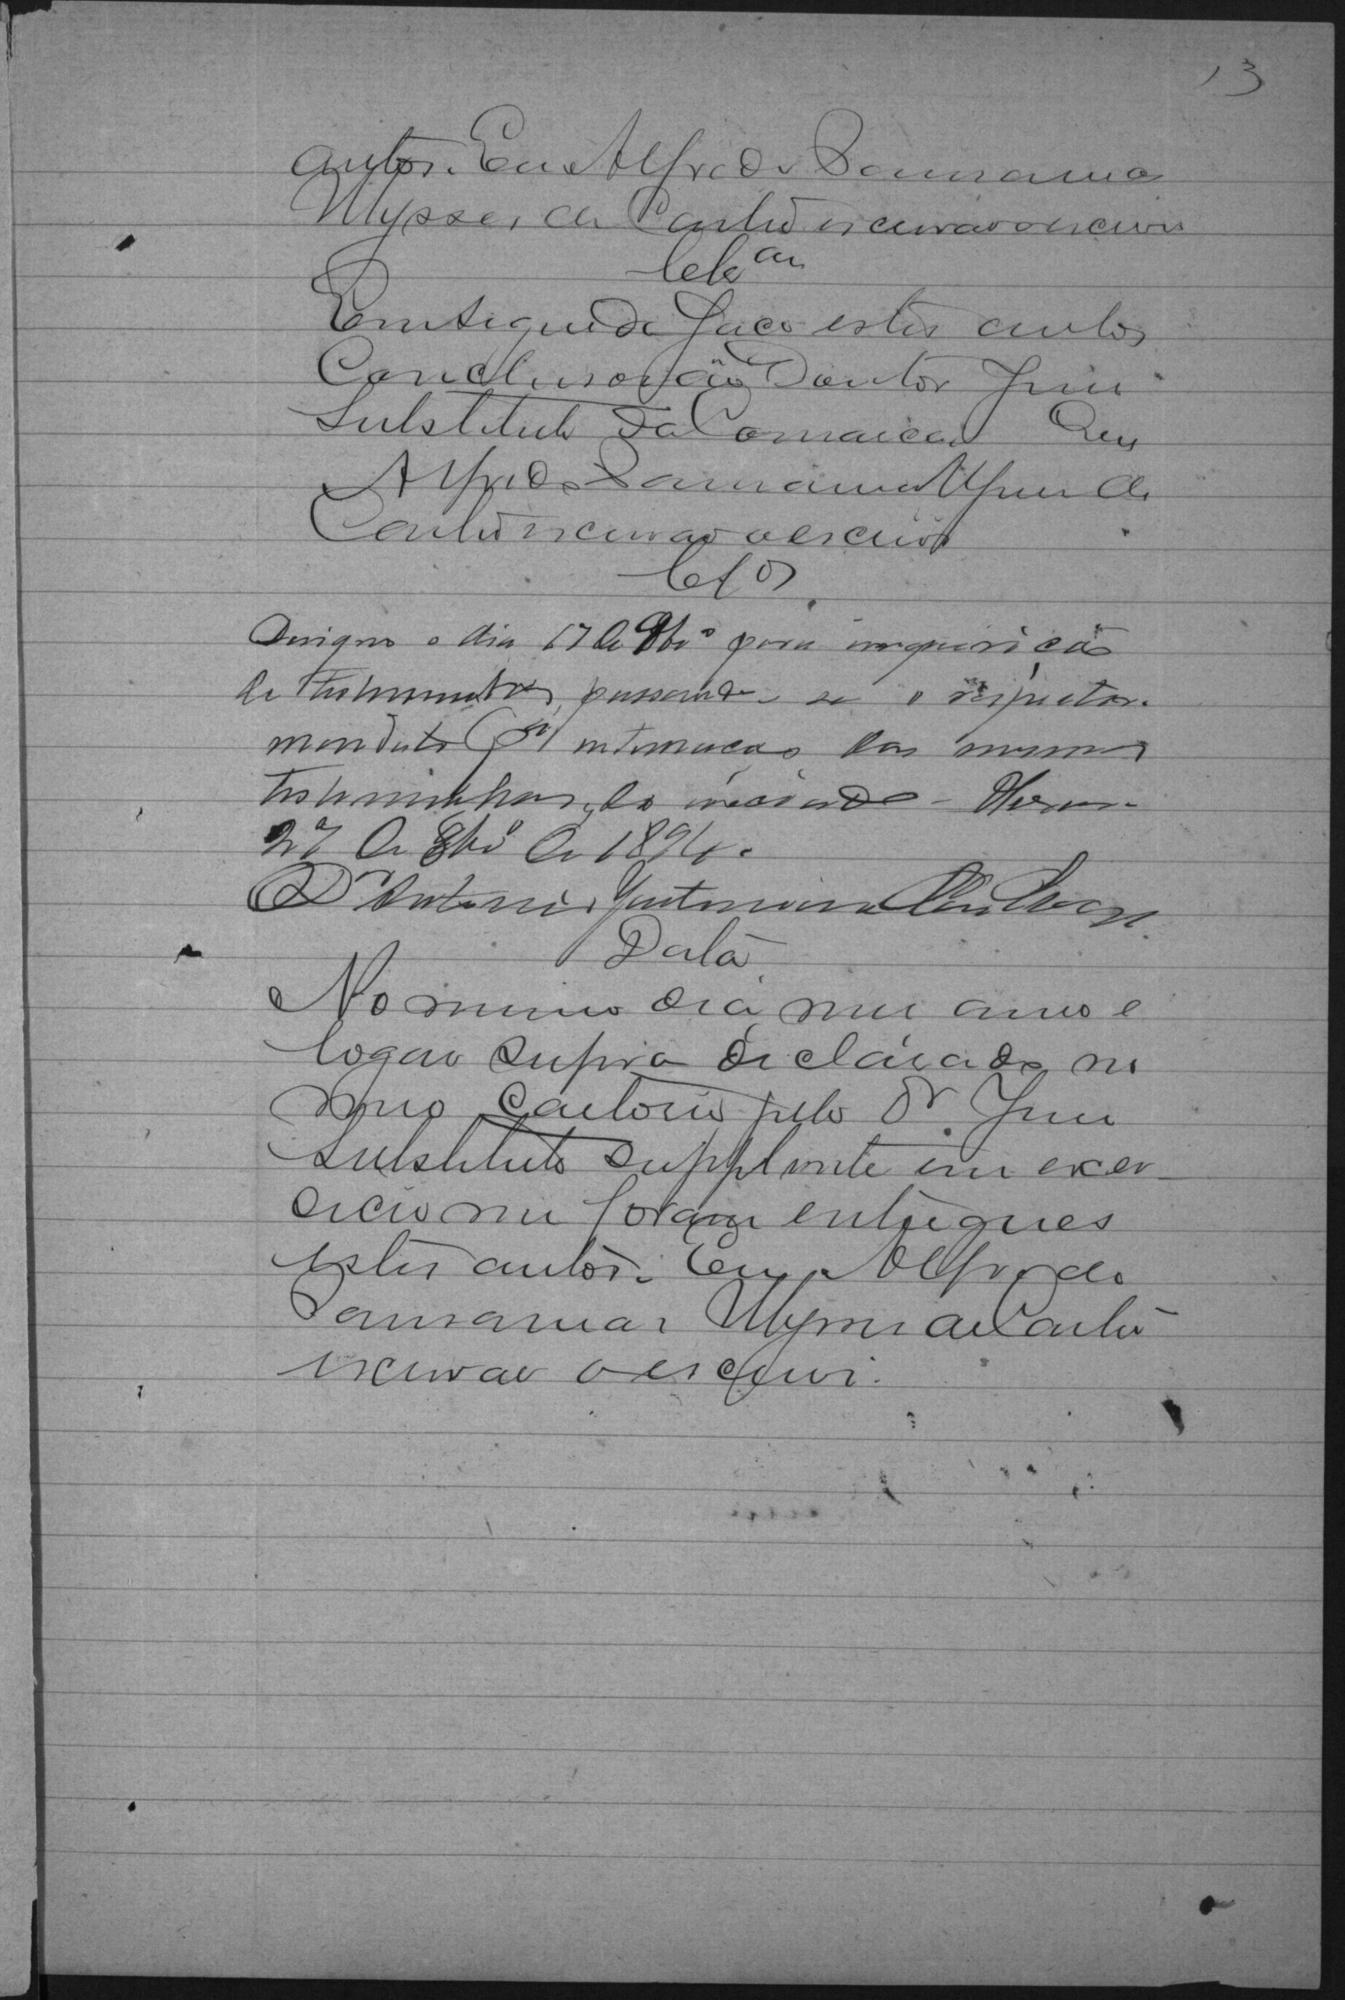 13
autos. Eu Alfredo
Ulysses de Castro escrivão o escrevi
Clsão
Em seguida faço estes autos
Conclusos ao Doutor Juiz
Substituto da Comarca. Eu
Alfredo Ulysses de
Castro escrivão o escrevi
Clos
Designo o dia 17 de 9bro para inquirição
de testemunhas, passando-se o respectivo
mandato pa intimação das mesmas
testemunhas, do
27 de 8bro de 1894.
Dr Antonio
Data
No mesmo dia mez anno e
logar supra declarado no
meo cartorio pelo Dr. Juiz
Substituto supplente em exer-
cicio me foram entregues
estes autos. Eu Alfredo
Ulysses de Castro
escrivão o escrevi.